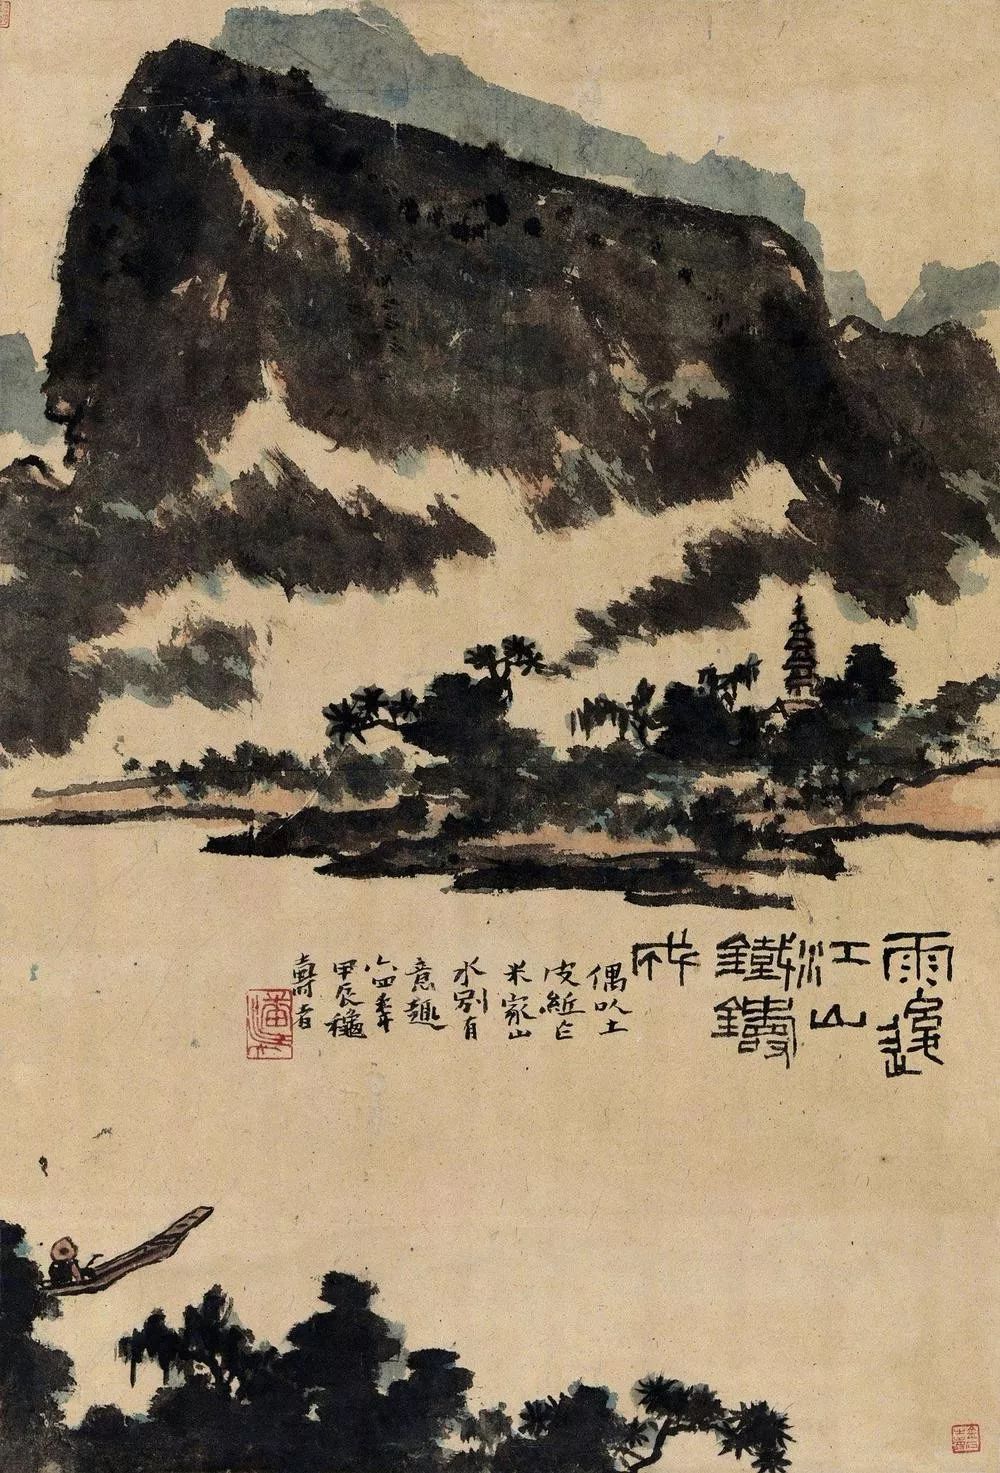 雨後
江山
鐵鑄
成
偶以土
皮紙乍
米家山
水別有
意趣
六四年
甲辰龝
壽者